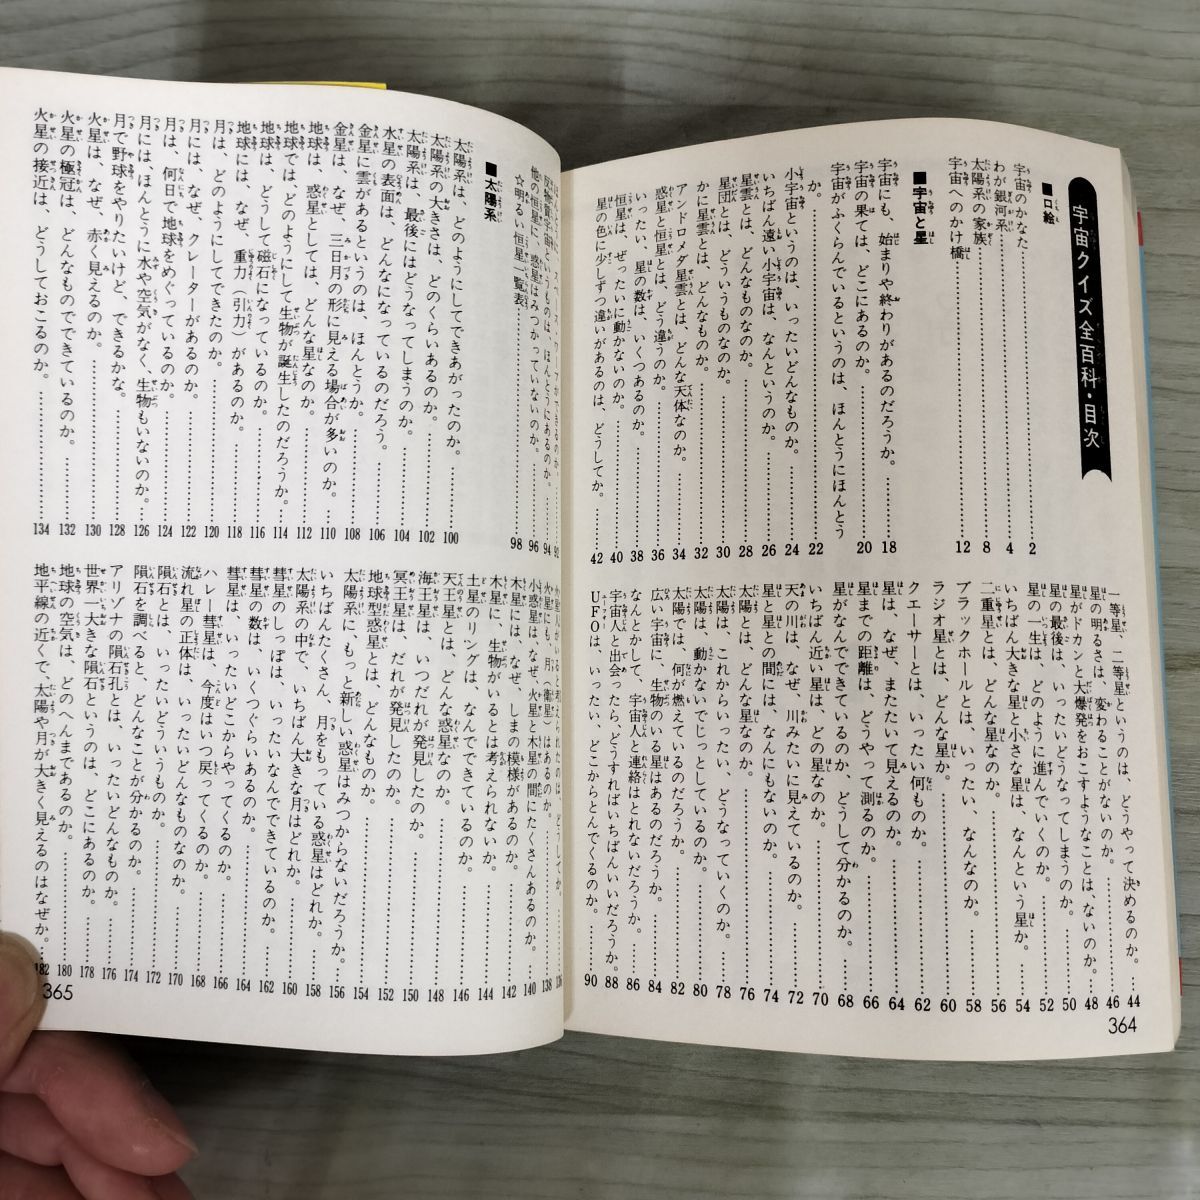 宇宙クイズ全百科・目次
■口絵
宇宙のかなた………2
わが銀河系………4
太陽系の家族………8
宇宙へのかけ橋………12
■宇宙と星
宇宙にも、始まりや終わりがあるのだろうか。………18
宇宙の果ては、どこにあるのか。………20
宇宙がふくらんでいるというのは、ほんとうにほんとう
か。………22
小宇宙というのは、いったいどんなものか。………24
いちばん遠い小宇宙は、なんというのか。………26
星雲とは、どんなものなのか。………28
星団とは、どういうものなのか。………30
かに星雲とは、どんなものか。………32
アンドロメダ星雲とは、どんな天体なのか。………34
惑星と恒星とは、どう違うのか。………36
いったい、星の数は、いくつあるのか。………38
恒星は、ぜったいに動かないのか。………40
星の色に少しずつ違いがあるのは、どうしてか。………42
一等星、二等星というのは、どうやって決めるのか。………44
星の明るさは、変わることがないのか。………46
星がドカンと大爆発をおこすようなことは、ないのか。………48
星の最後は、いったいどうなってしまうのか。………50
星の一生は、どのように進んでいくのか。………52
いちばん大きな星と小さな星は、なんという星か。………54
二重星とは、どんな星なのか。………56
ブラックホールとは、いったい、なんなのか。………58
ラジオ星とは、どんな星か。………60
クエーサーとは、いったい何ものか。………62
星は、なぜ、またたいて見えるのか。………64
星までの距離は、どうやって測るのか。………66
星がなんでできているのか、どうして分かるのか。………68
いちばん近い星は、どの星なのか。………70
天の川は、なぜ、川みたいに見えているのか。………72
星と星との間には、なんにもないのか。………74
太陽とは、どんな星なのか。………76
太陽は、これからいったい、どうなっていくのか。………78
太陽は、動かないでじっとしているのか。………80
太陽では、何が燃えているのだろうか。………82
広い宇宙に、生物のいる星はあるのだろうか。………84
なんとかして、宇宙人と連絡はとれないだろうか。………86
宇宙人と出会ったら、どうすればいちばんいいだろうか。………88
UFOは、いったい、どこからとんでくるのか。………90
364
反物質宇宙というものは、ほんとうにあるのか。………94
他の恒星に、惑星はみつかっていないのか。………96
☆明るい恒星一覧表………98
■太陽系
太陽系は、どのようにしてできあがったのか。………100
太陽系の大きさは、どのくらいあるのか。………102
太陽系は、最後にはどうなってしまうのか。………104
水星の表面は、どんなになっているのだろう。………106
金星に雲があるというのは、ほんとうか。………108
金星は、なぜ、三日月の形に見える場合が多いのか。………110
地球は、惑星としては、どんな星なのか。………112
地球では、どのようにして生物が誕生したのだろうか。………114
地球は、どうして磁石になっているのか。………116
地球には、なぜ、重力（引力）があるのか。………118
月は、どのようにしてできたのか。………120
月には、なぜ、クレーターがあるのか。………122
月は、何日で地球をめぐっているのか。………124
月にはほんとうに水や空気がなく、生物もいないのか。………126
月で野球をやりたいけど、できるかな。………128
火星は、なぜ、赤く見えるのか。………130
火星の極冠は、どんなものでできているのか。………132
火星の接近は、どうしておこるのか。………134
火星にも、月（衛星）はあるのか。………138
小惑星は、なぜ、火星と木星の間にたくさんあるのか。………140
木星には、なぜ、しまの模様があるのか。………142
木星に、生物がいるとは考えられないか。………144
土星のリングは、なんでできているのか。………146
天王星とは、どんな惑星なのか。………148
海王星は、いつだれが発見したのか。………150
冥王星は、だれが発見したのか。………152
地球型惑星とは、どんなものか。………154
太陽系に、もっと新しい惑星はみつからないだろうか。………156
いちばんたくさん、月をもっている惑星はどれか。………158
太陽系の中で、いちばん大きな月はどれか。………160
彗星のしっぽは、いったいなんでできているのか。………162
彗星の数は、いくつぐらいあるのか。………164
彗星は、いったいどこからやってくるのか。………166
ハレー彗星は、今度はいつ戻ってくるのか。………168
流れ星の正体は、いったいどんなものなのか。………170
隕石とは、いったいどういうものか。………172
隕石を調べると、どんなことが分かるのか。………174
アリゾナの隕石孔とは、いったいどんなものか。………176
世界一大きな隕石というのは、どこにあるのか。………178
地球の空気は、どのへんまであるのか。………180
地平線の近くで、太陽や月が大きく見えるのはなぜか。………182
365